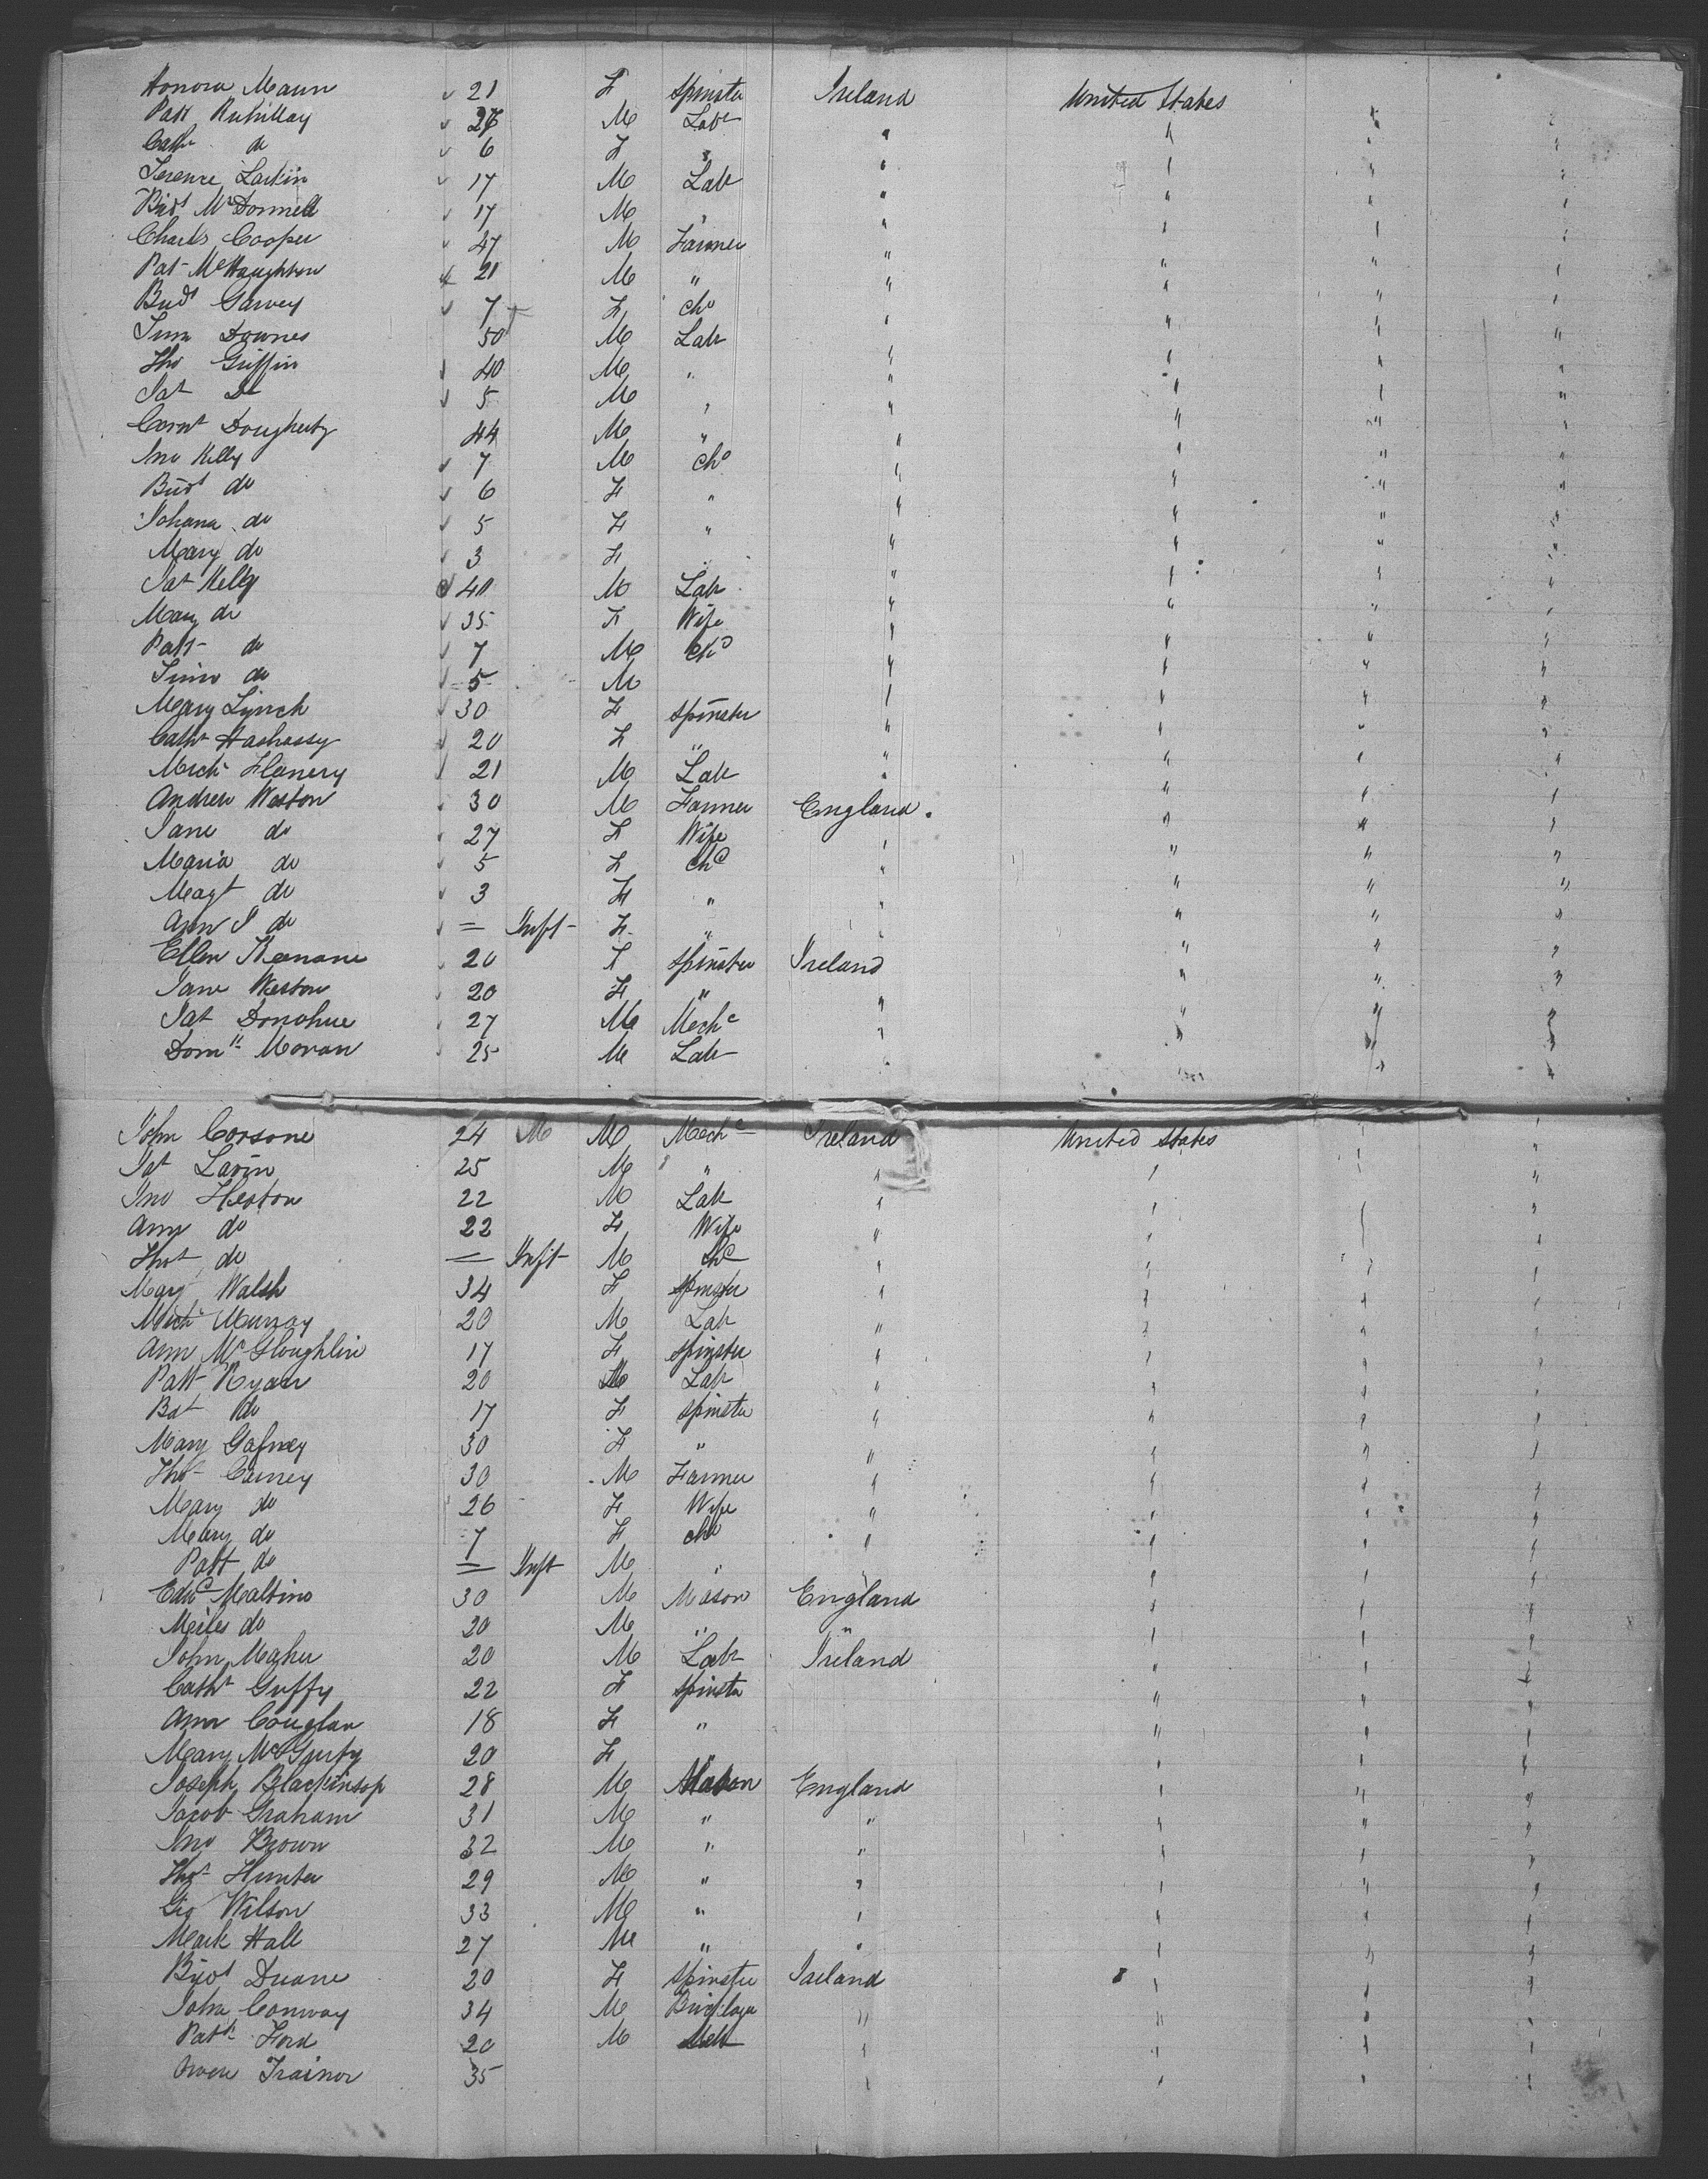 Honora Maun 21 F Spinster Ireland United States
Patt 27 M Labr " " " "
Cath do 6 F " " " " "
Terence Larkin 17 M Labr " " " "
Bridt McDonnell 17 M " " " " "
Charls Cooper 47 M Farmer " " " "
Pat McNaughton 21 M " " " " "
Bridt Garvey 7 F chd " " " "
Jim Downes 50 M Labr " " " "
Tho Griffin 40 M " " " " "
Pat Do 5 M " " " " "
Dougherty 44 M " " " " "
Jno Kelly 7 M chd " " " "
Bridt do 6 F " " " " "
Johana do 5 F " " " " "
Mary do 3 F " " " " "
Pat Kelly 40 M Labr " " " "
Mary do 35 F Wife " " " "
Patt do 7 M chd " " " "
do 5 M " " " "
Mary Lynch 30 F Spinster " " " "
Catht 20 F " " " " "
Mich Flanery 21 M Labr " " " "
Andrew Weston 30 M Farmer England . " " "
Jane do 27 F Wife " " " "
Maria do 5 F chd " " " "
Magt do 3 F " " " " "
Ann J do = Inft F " " " " "
Ellen Keenane 20 F Spinster Ireland " " "
Jane Weston 20 F " " " " "
Pat Donohue 27 M Mechc " " " "
Domk Moran 25 M Labr " " " "
John Corsone 24 M M Mechc Ireland United States " "
Pat Lavin 25 M " " " " "
Jno Heston 22 M Labr " " " "
Amy do 22 F Wife " " " "
Thos do = Inft M Chd " " " "
Mary Walsh 34 F Spinster " " " "
Mich Murray 20 M Labr " " " "
Ann McGloughlin 17 F Spinster " " " "
Patt Ryan 20 M Labr " " " "
Bdt do 17 F Spinster " " " "
Mary Gafney 30 F " " " " "
Thos Carney 30 M Farmer " " " "
Mary do 26 F Wife " " " "
Mary do 7 F chd " " " "
Patt do = Inft M " " " " "
Edwd Maltino 30 M Mason England " " "
Miles do 20 M " " " " "
John Maher 20 M Labr Ireland " " "
Catht Guffy 22 F Spinster " " "
Ann Couglan 18 F " " " "
Mary McGurty 20 F " " " "
Joseph Blackinsop 28 M Mason England " " "
Jacob Graham 31 M " " " " "
Jno Brown 32 M " " " " "
Thos Hunter 29 M " " " " "
Geo Wilson 33 M " " " " "
Mark Hall 27 M " " " " "
Bridt Duane 20 F Spinster Ireland " " "
John Conway 34 M Bricklayer " " " "
Patk Ford 20 M " " " "
Owen Trainor 35 " " " "